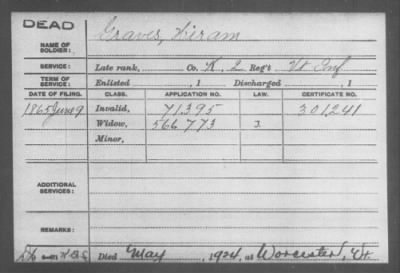 DEAD
NAME OF SOLDIER: Graves, Hiram
SERVICE: Late rank, Co. K, 2 Reg't Vt Inf
TERM OF SERVICE: Enlisted , 1 Discharged , 1
DATE OF FILING. CLASS. APPLICATION NO. LAW. CERTIFICATE NO.
1865 June 9 Invalid, 71.395 301241
Widow, 566 773 J.
Minor,
ADDITIONAL SERVICES:
REMARKS:
Died May , 1924, at Worcester, Vt.